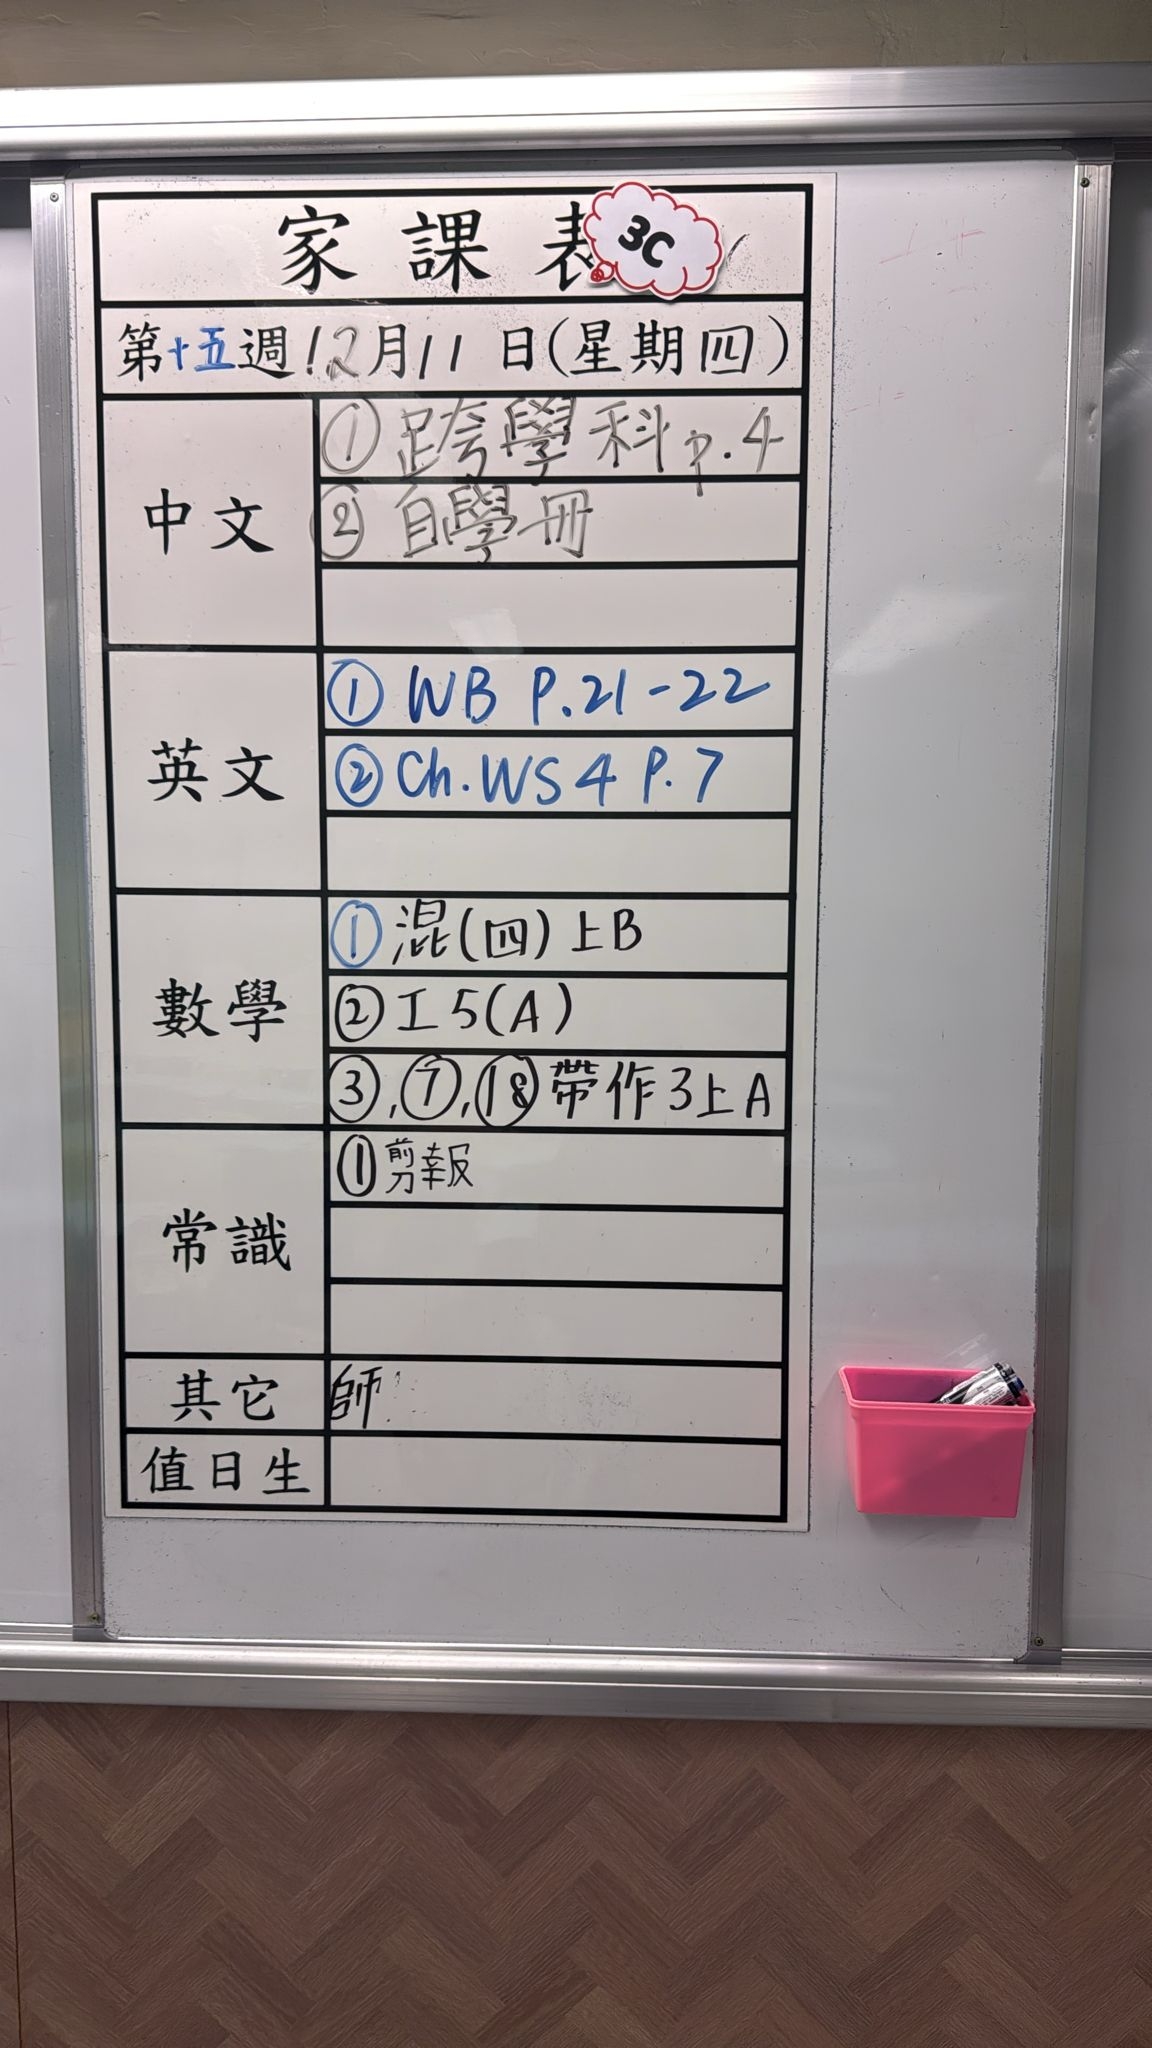 家課表 3C
第十五週12月11日(星期四)
中文
① 跨學科 p.4
② 自學冊
英文
① WB P.21-22
② Ch.WS4 P.7
數學
① 混(四)上B
② 工5(A)
③,⑦,⑱帶作3上A
常識
①剪報
其它
師
值日生